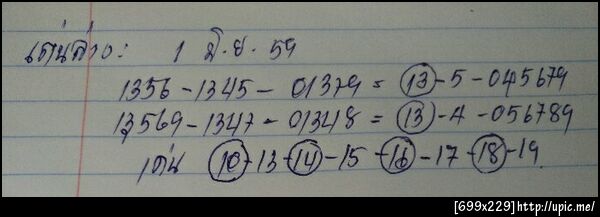 เด่นล่าง: 1 มิ.ย. 59
1356-1345-01379=13-5-045679
13569-1347-01348=13-4-056789
เด่น 10-13-14-15-16-17-18-19
[699x229]http://upic.me/